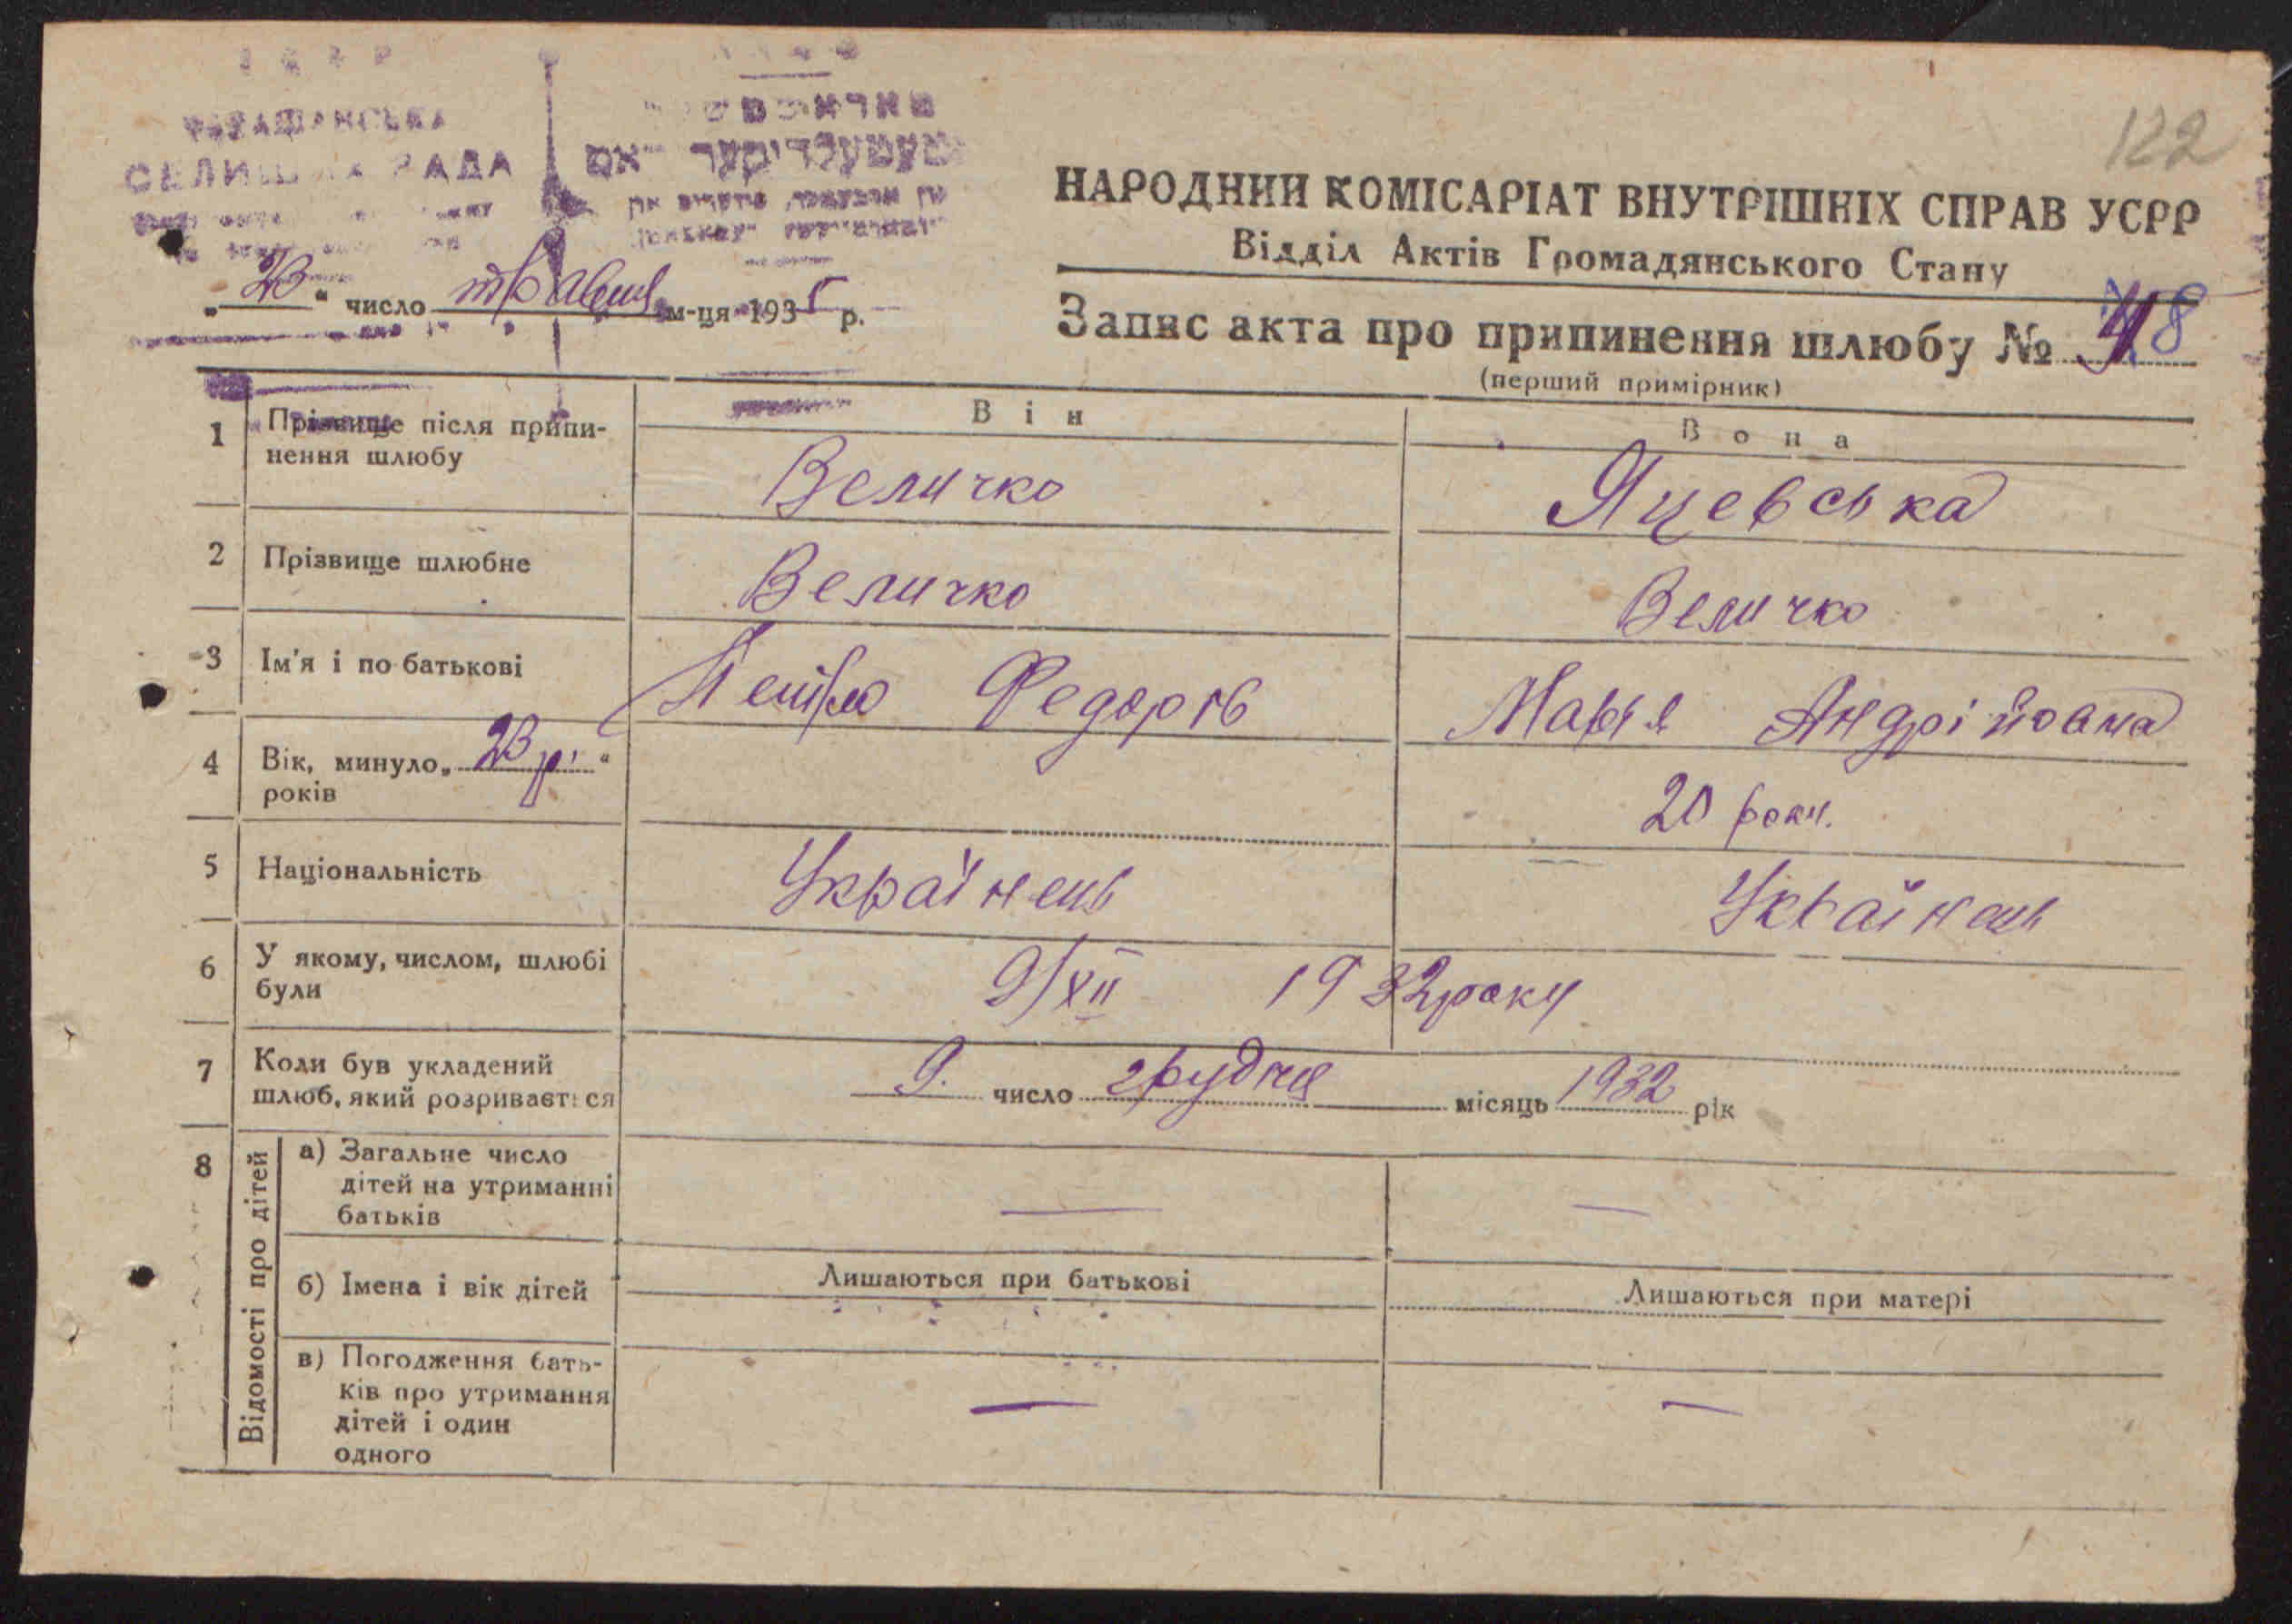 122
СЕЛИЩНА РАДА
НАРОДНИЙ КОМІСАРІАТ ВНУТРІШНІХ СПРАВ УСРР
Відділ Актів Громадянського Стану
„23“ число травня м-ця 1935 р.
Запис акта про припинення шлюбу № 48
(перший примірник)
Він
Вона
1 Прізвище після припи-
нення шлюбу
Величко
Яцевська
2 Прізвище шлюбне
Величко
Величко
3 Ім'я і по-батькові
Петро Федорів
Марія Андрійовна
4 Вік, минуло „23 р.“
років
20 роки.
5 Національність
Українець
Українець
6 У якому, числом, шлюбі
були
9/XII 1932 року
7 Коли був укладений
шлюб, який розривається
9. число грудня місяць 1932 рік
8 Відомості про дітей
а) Загальне число
дітей на утриманні
батьків
—
—
б) Імена і вік дітей
Лишаються при батькові
Лишаються при матері
в) Погодження бать-
ків про утримання
дітей і один
одного
—
—